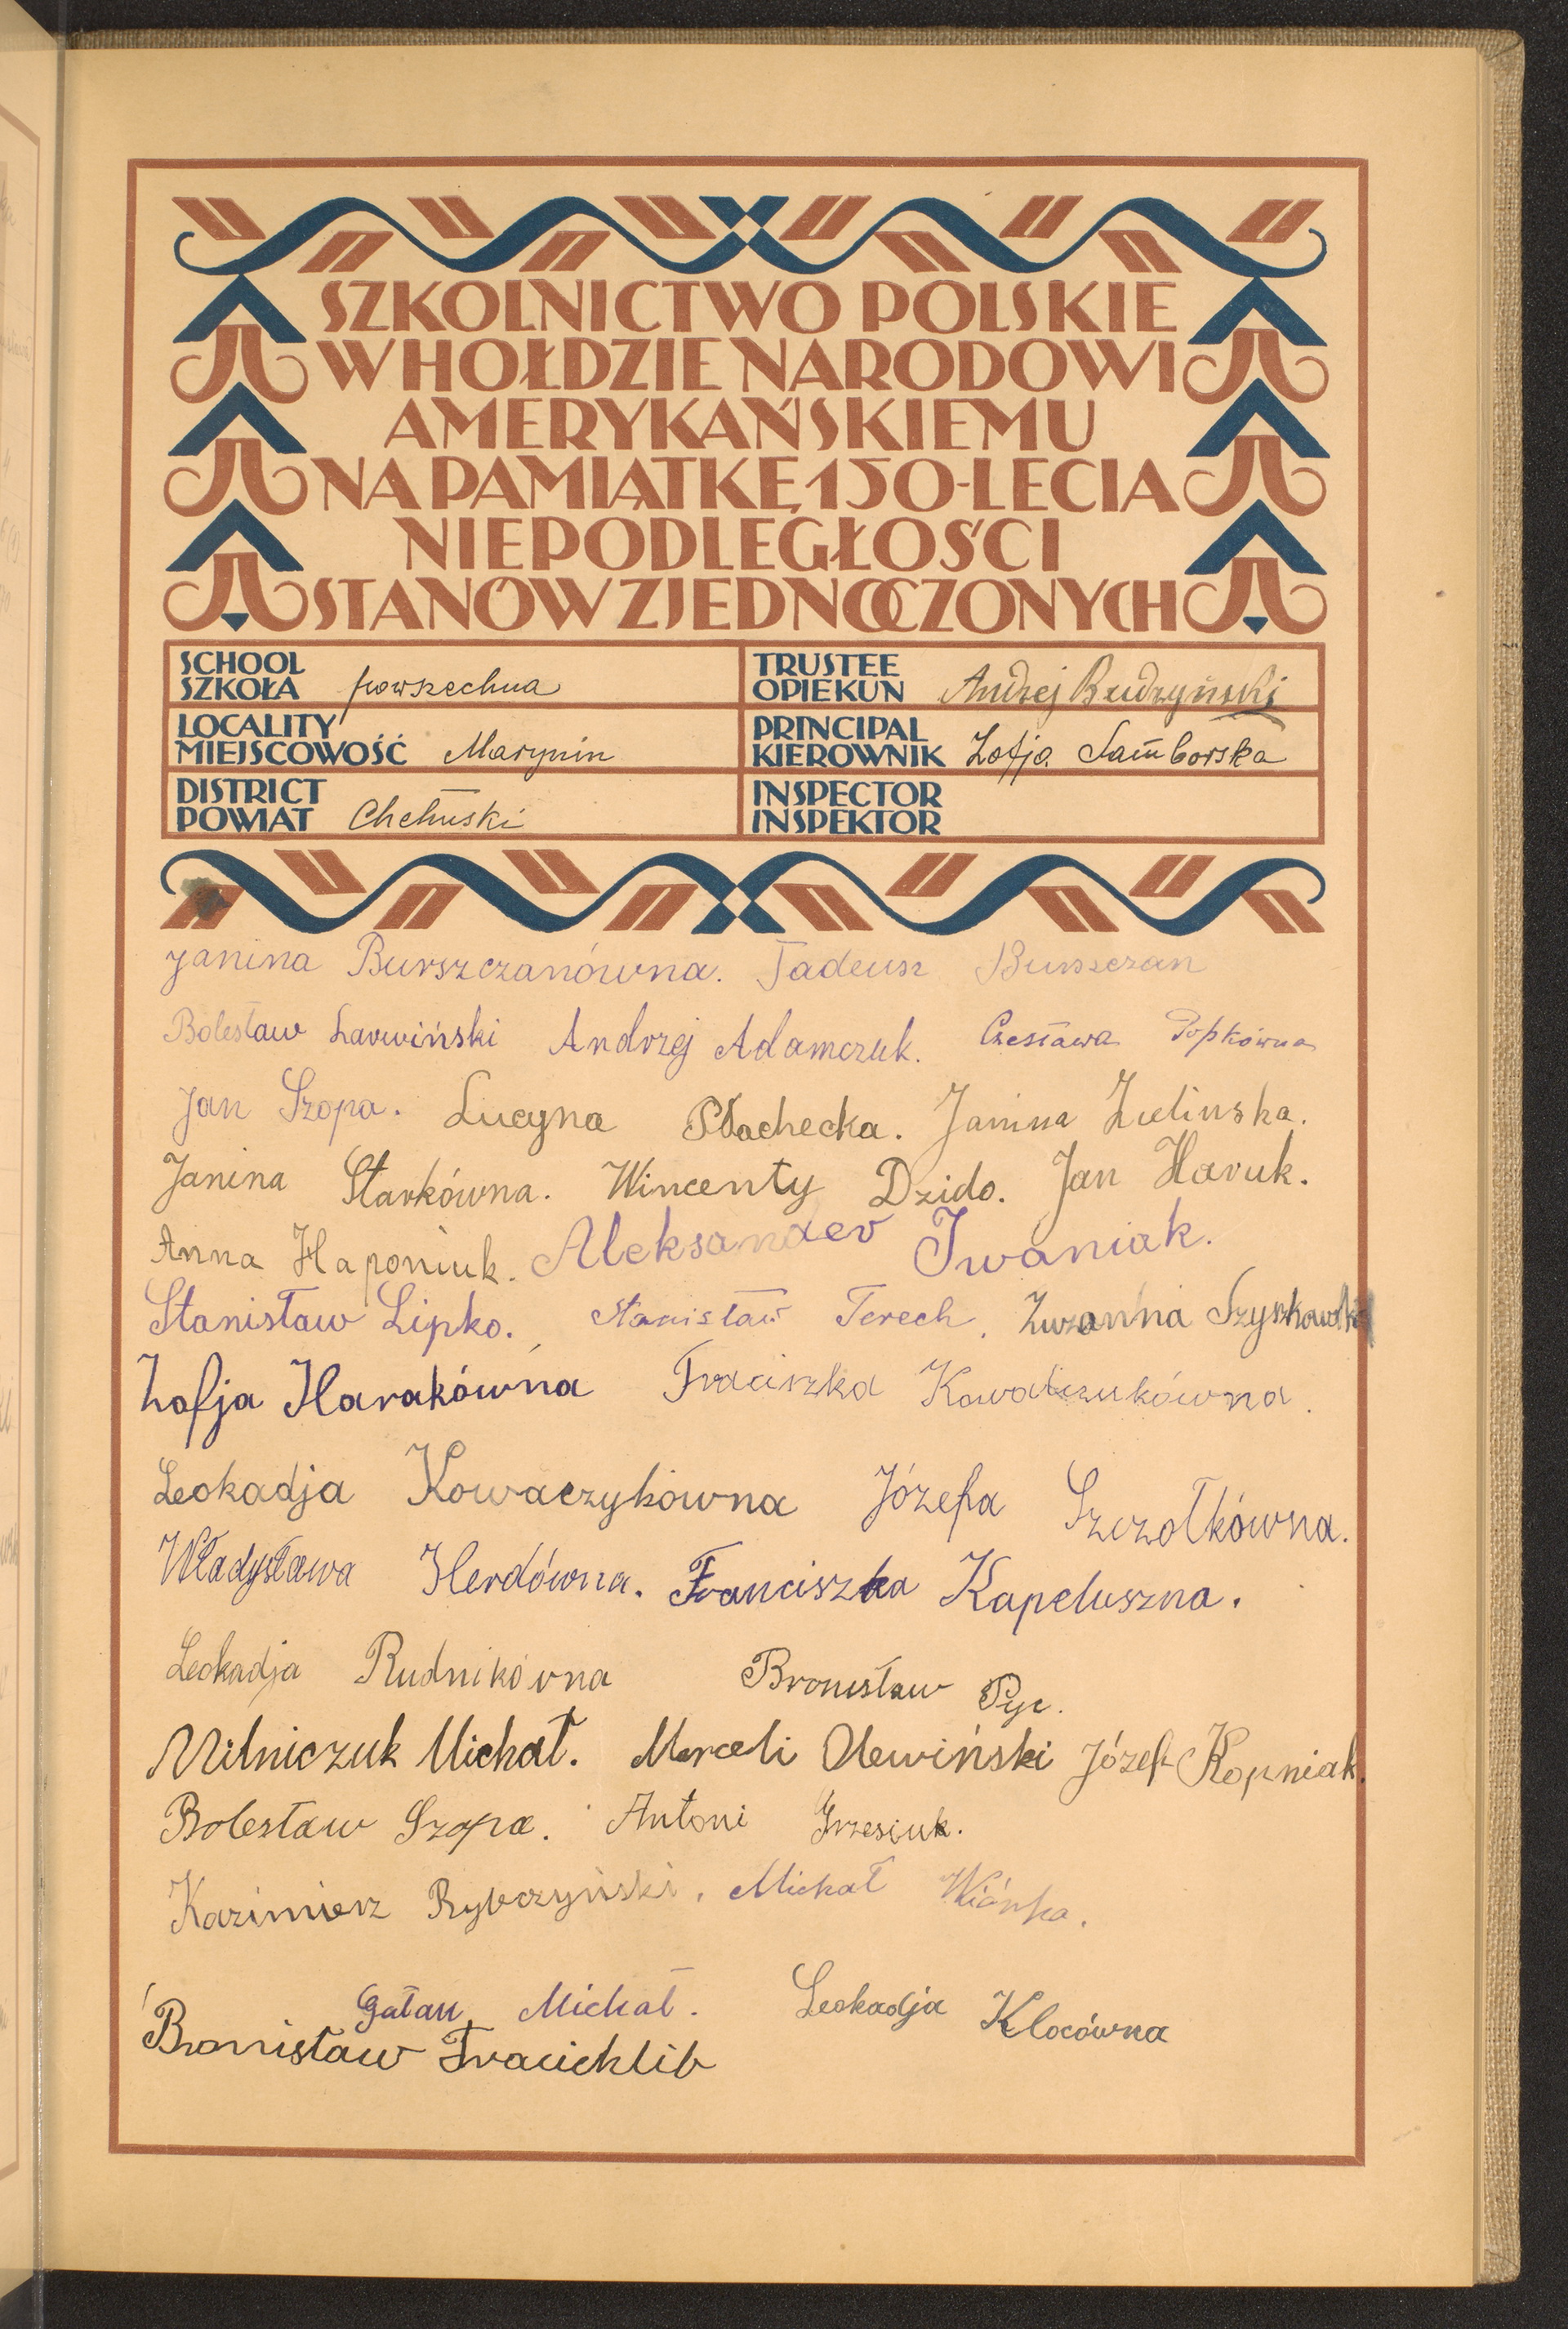 SZKOLNICTWO POLSKIE
W HOŁDZIE NARODOWI
AMERYKAŃSKIEMU
NA PAMIĄTKĘ 150-LECIA
NIEPODLEGŁOŚCI
STANÓW ZJEDNOCZONYCH
SCHOOL
SZKOŁA powszechna
TRUSTEE
OPIEKUN Andrzej Budzyński
LOCALITY
MIEJSCOWOŚĆ Marynin
PRINCIPAL
KIEROWNIK Zofja Samborska
DISTRICT
POWIAT Chełmski
INSPECTOR
INSPEKTOR
Janina Burszczanówna. Tadeusz Burszczan
Bolesław Larwiński Andrzej Adamczuk. Czesława Popkówna
Jan Szopa. Lucyna Płachecka. Janina Zielinska.
Janina Starkówna. Wincenty Dzido. Jan Haruk.
Anna Haponiuk. Aleksander Iwaniak.
Stanisław Lipko. Stanisław Terech. Zuzanna Szyszkowska
Zofja Harakówna Fraciszka Kowalczukówna.
Leokadja Kowaczykówna Józefa Szczotkówna.
Władysława Herdówna. Franciszka Kapeluszna.
Leokadja Rudnikówna Bronisław Pyc.
Milniczuk Michał. Marceli Olewiński Józef Kopniak.
Bolesław Szopa. Antoni Grzesiuk.
Kazimierz Rybczyński. Michał Wiórka.
Gałan Michał. Leokadja Klocówna
Bronisław